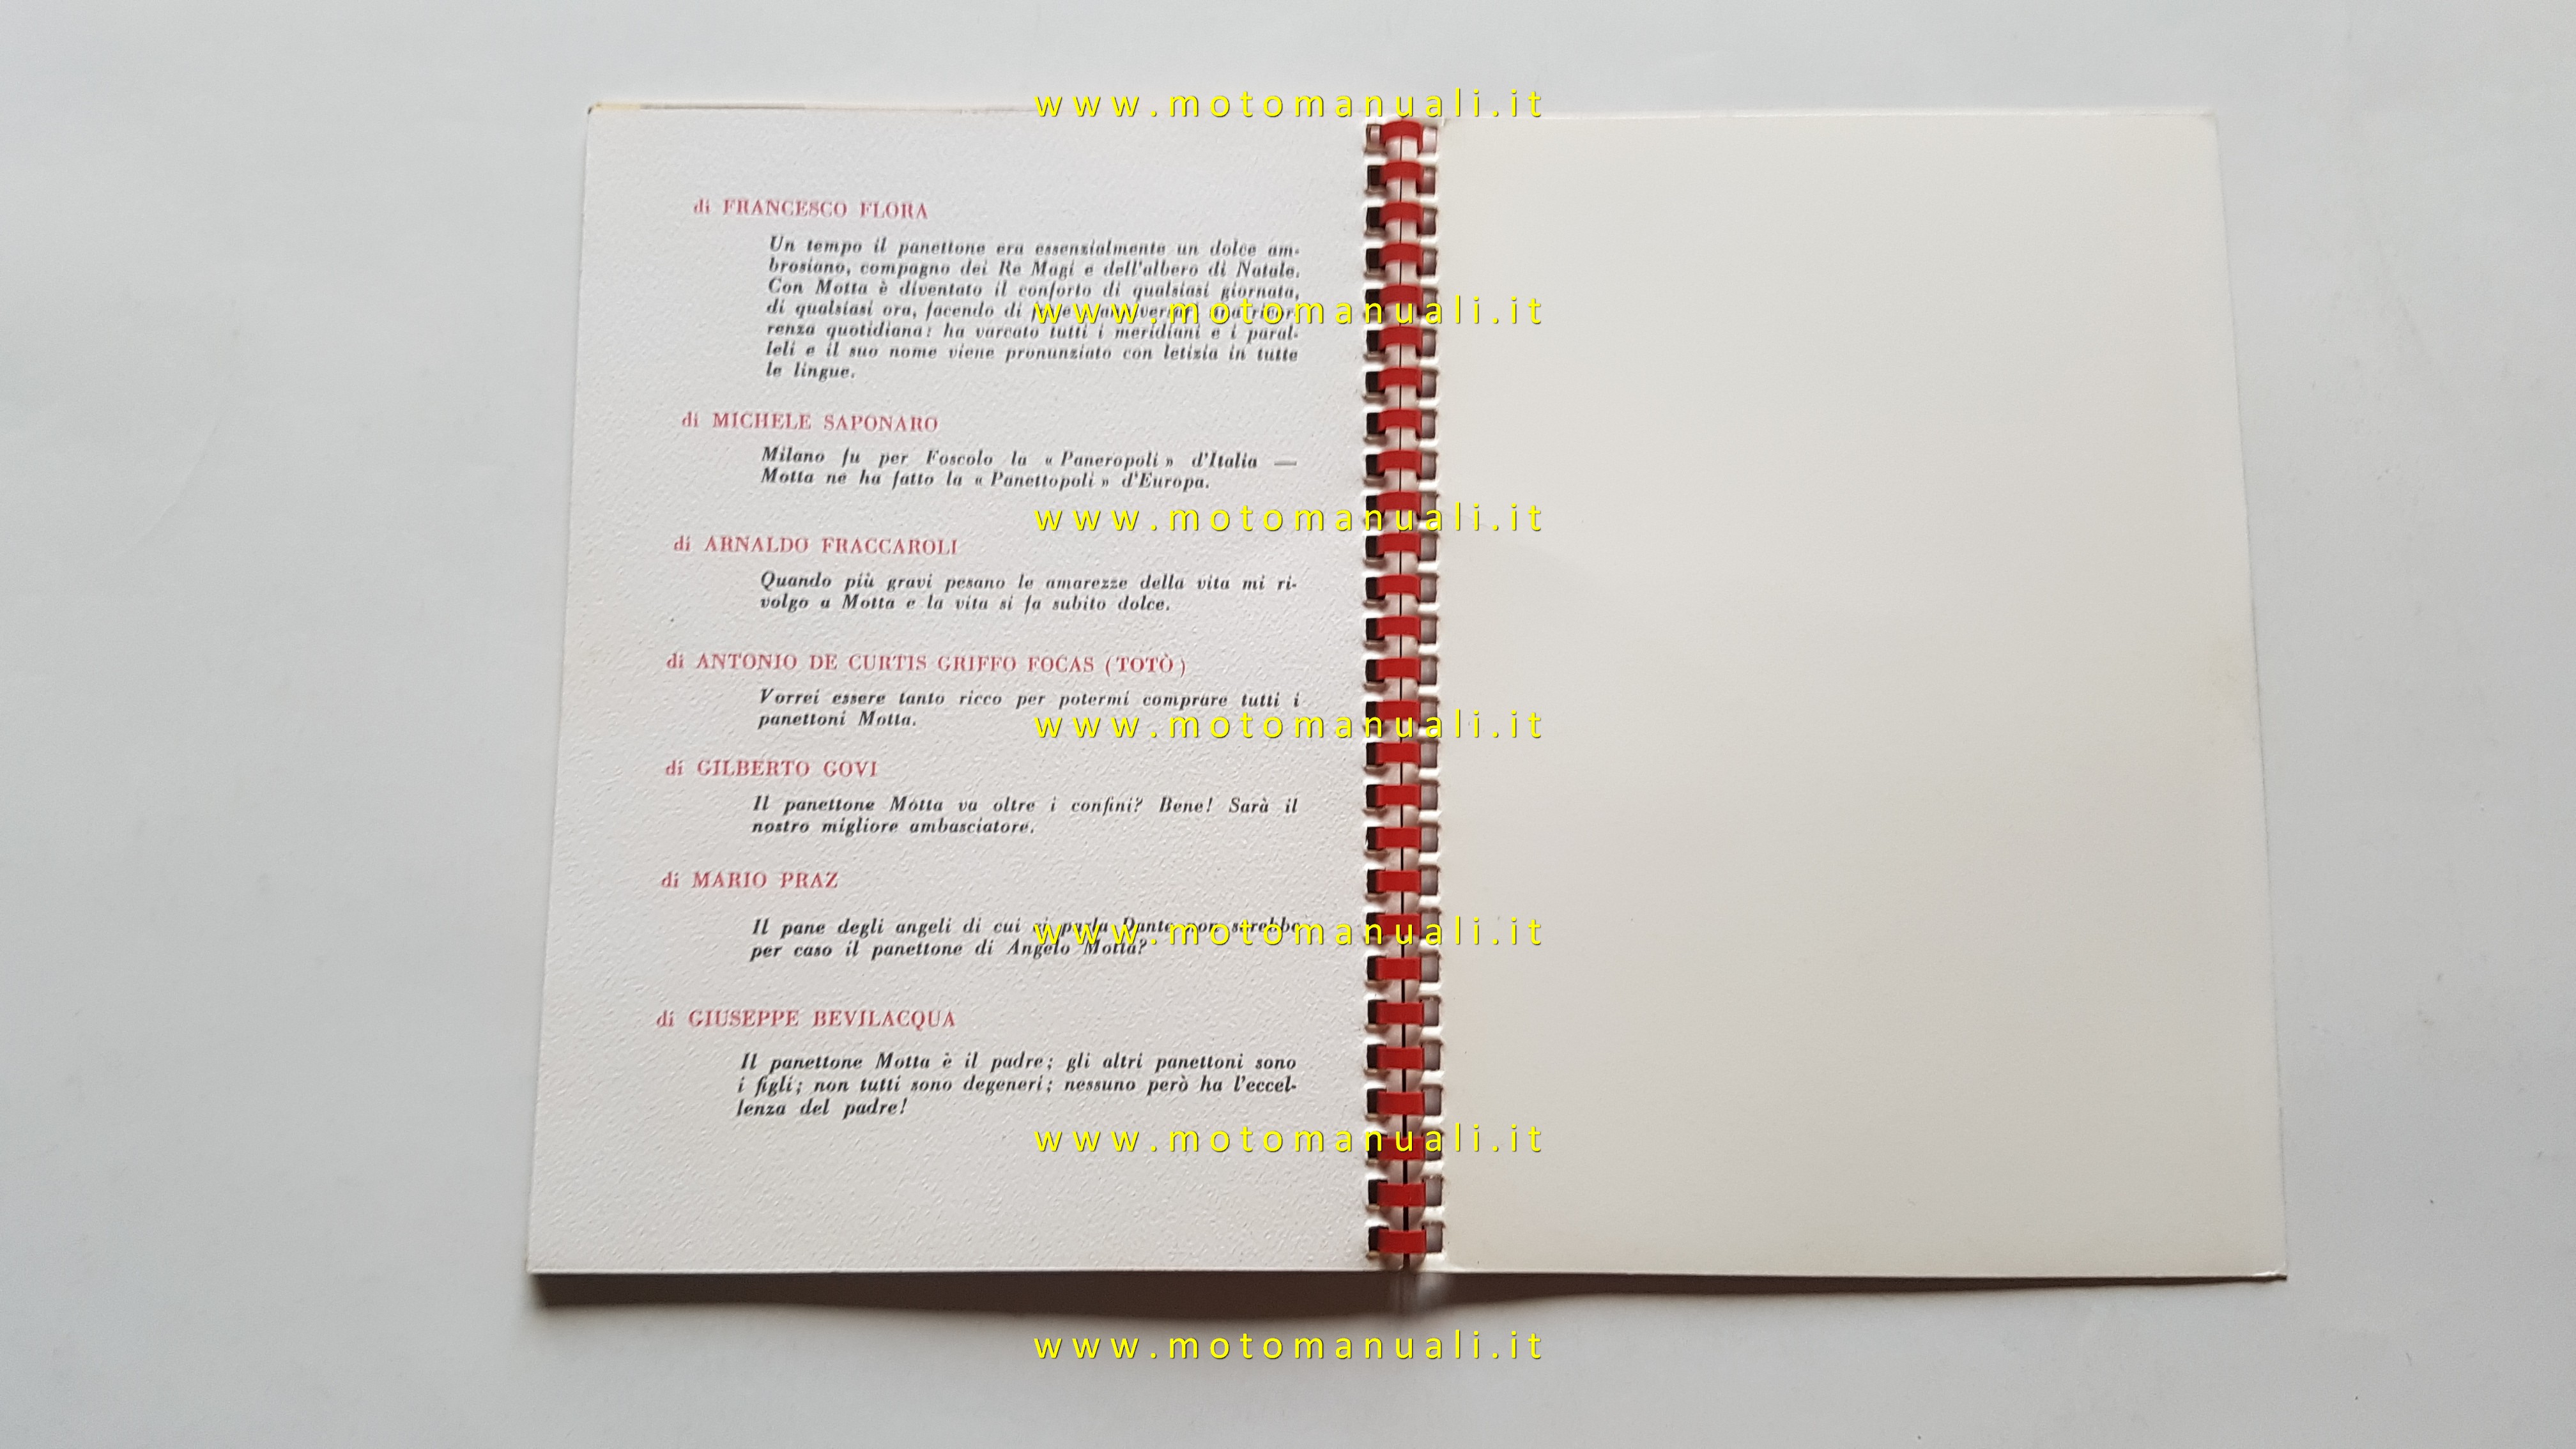 www.motomanuali.it
di FRANCESCO FLORA
Un tempo il panettone era essenzialmente un dolce am-
brosiano, compagno dei Re Magi e dell'albero di Natale.
Con Motta è diventato il conforto di qualsiasi giornata,
di qualsiasi ora, facendo di
www.motomanuali.it
renza quotidiana: ha varcato tutti i meridiani e i paral-
leli e il suo nome viene pronunziato con letizia in tutte
le lingue.
di MICHELE SAPONARO
Milano fu per Foscolo la « Paneropoli » d'Italia —
Motta ne ha fatto la « Panettopoli » d'Europa.
www.motomanuali.it
di ARNALDO FRACCAROLI
Quando più gravi pesano le amarezze della vita mi ri-
volgo a Motta e la vita si fa subito dolce.
di ANTONIO DE CURTIS GRIFFO FOCAS (TOTÒ)
Vorrei essere tanto ricco per potermi comprare tutti i
panettoni Motta.
www.motomanuali.it
di GILBERTO GOVI
Il panettone Motta va oltre i confini? Bene! Sarà il
nostro migliore ambasciatore.
di MARIO PRAZ
Il pane degli angeli di cui ci parla Dante non sarebbe
www.motomanuali.it
per caso il panettone di Angelo Motta?
di GIUSEPPE BEVILACQUA
Il panettone Motta è il padre; gli altri panettoni sono
i figli; non tutti sono degeneri; nessuno però ha l'eccel-
lenza del padre!
www.motomanuali.it
www.motomanuali.it